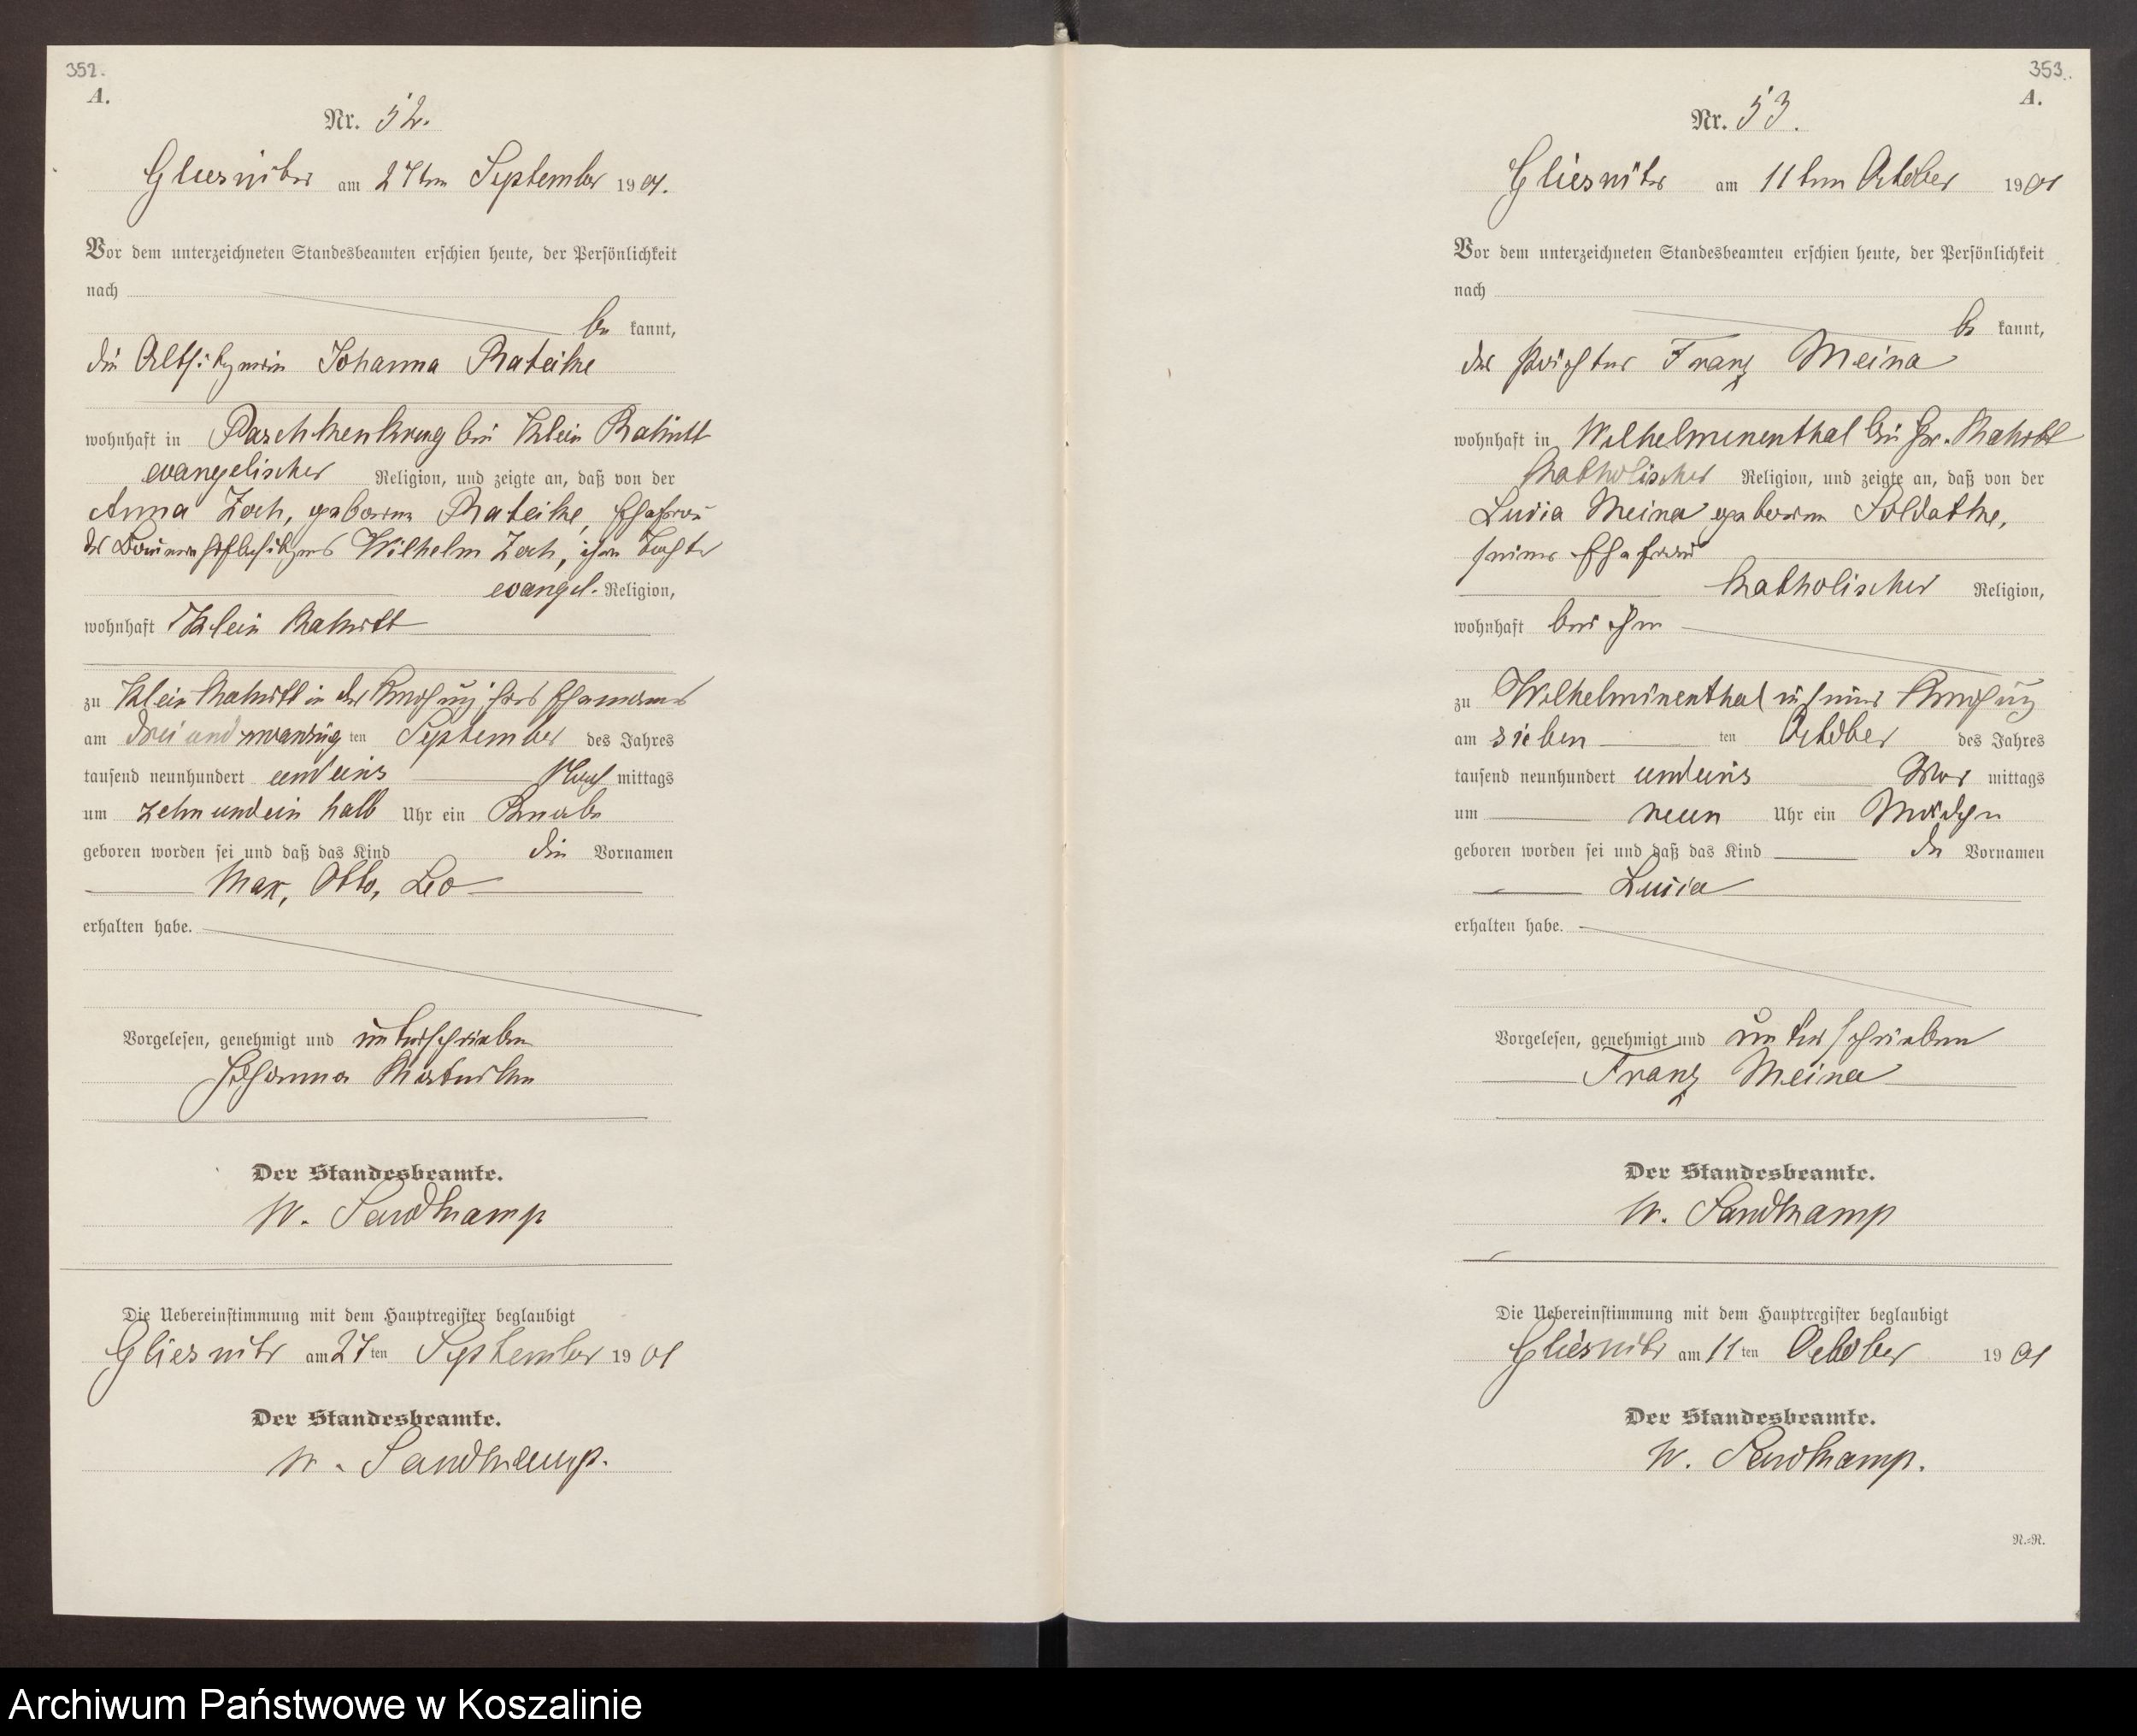 352.
A.
Nr. 52.
Gliesnitz am 27ten September 1901.
Vor dem unterzeichneten Standesbeamten erschien heute, der Persönlichkeit
nach
be kannt,
die Altsitzerin Johanna Rateike
wohnhaft in Paschkenkrug bei Klein
evangelischer Religion, und zeigte an, daß von der
Anna Zoch, geborenen Rateike, Ehefrau
des Bauernhofbesitzers Wilhelm Zoch, ihrer Tochter
evangel. Religion,
wohnhaft Klein
zu Klein in der Wohnung ihres Ehemanns
am drei und zwanzig ten September des Jahres
tausend neunhundert und eins Nach mittags
um zehn und ein halb Uhr ein Knabe
geboren worden sei und daß das Kind die Vornamen
Max, Otto, Leo
erhalten habe.
Vorgelesen, genehmigt und unterschrieben
Johanna
Der Standesbeamte.
W. Sandkamp
Die Uebereinstimmung mit dem Hauptregister beglaubigt
Gliesnitz am 27 ten September 1901
Der Standesbeamte.
W. Sandkamp.
353.
A.
Nr. 53.
Gliesnitz am 11ten October 1901
Vor dem unterzeichneten Standesbeamten erschien heute, der Persönlichkeit
nach
be kannt,
der Pächter Franz Meina
wohnhaft in Wilhelminenthal bei Gr.
katholischer Religion, und zeigte an, daß von der
Lucia Meina geborenen Soldatke,
seiner Ehefrau
katholischer Religion,
wohnhaft bei ihm
zu Wilhelminenthal in seiner Wohnung
am sieben ten October des Jahres
tausend neunhundert und eins Vor mittags
um neun Uhr ein Mädchen
geboren worden sei und daß das Kind den Vornamen
Lucia
erhalten habe.
Vorgelesen, genehmigt und unterschrieben
Franz Meina
Der Standesbeamte.
W. Sandkamp
Die Uebereinstimmung mit dem Hauptregister beglaubigt
Gliesnitz am 11 ten October 1901
Der Standesbeamte.
W. Sandkamp.
N.=N.
Archiwum Państwowe w Koszalinie